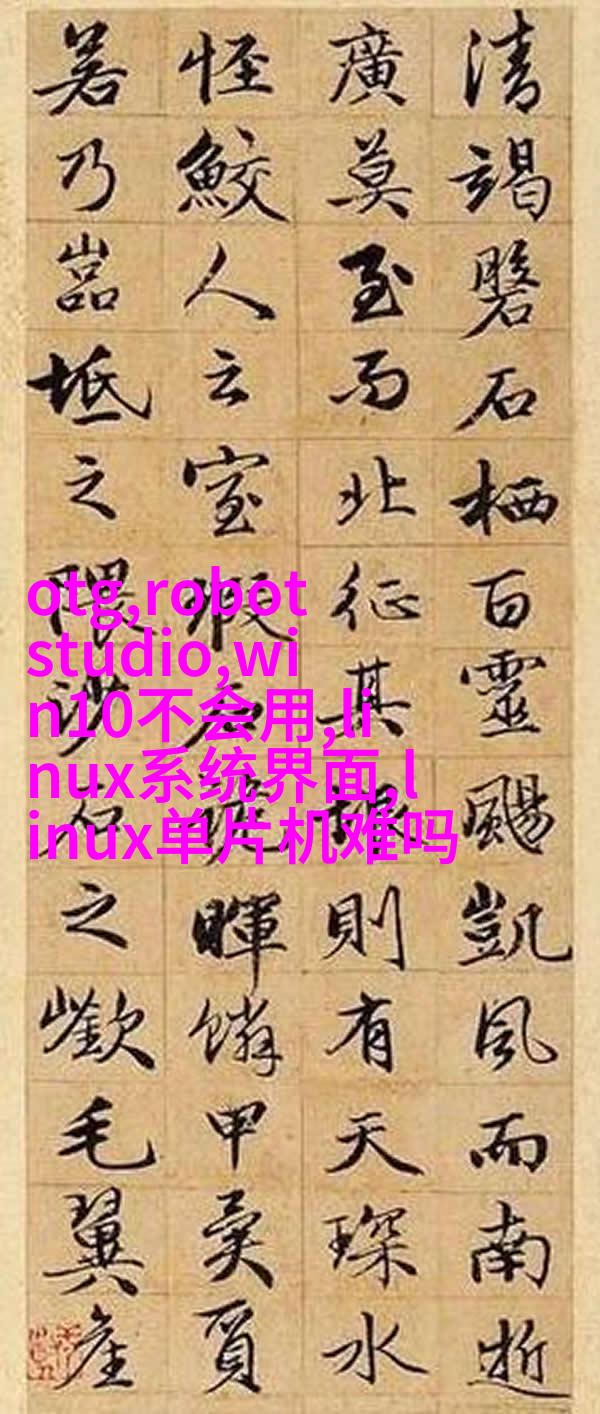 清竭磐石栖百靈颺凱風而南逝
廣莫至而北征其垠則有天琛水
怪鮫人之室瑕石詭暉鱗甲異質
若乃嵓坻之隈沙石之嶔毛翼產
otg,robot
studio,wi
n10不会用,li
nux系统界面,l
inux单片机难吗